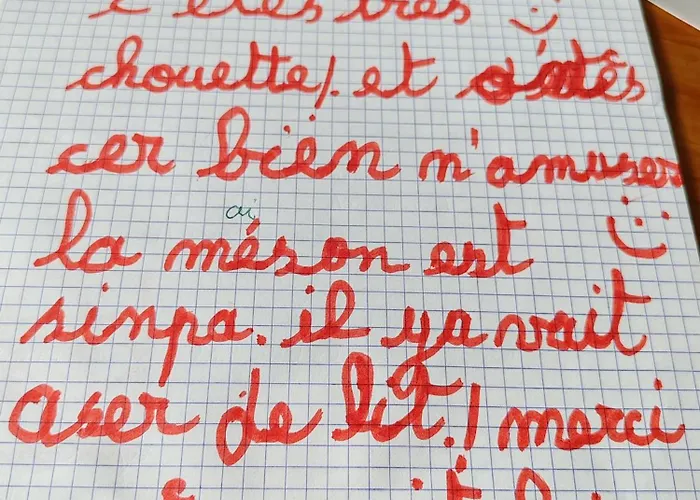 c'étés très
chouette!. et
cer bien m'amuser
ai
la méson est
sinpa. il ya vait
aser de lit.! merci